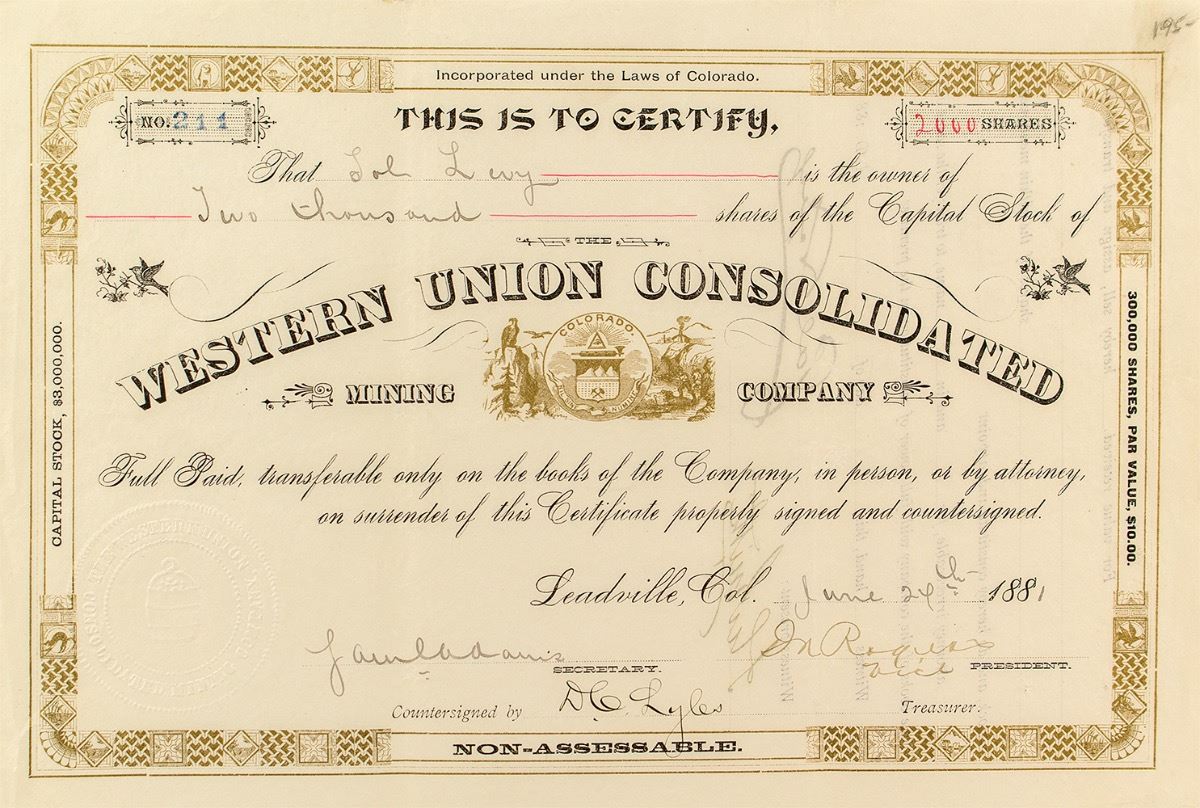 195-
Incorporated under the Laws of Colorado.
NO. 211
THIS IS TO CERTIFY,
2000 SHARES
That Sol Levy is the owner of
Two thousand shares of the Capital Stock of
THE
WESTERN UNION CONSOLIDATED
MINING COMPANY
COLORADO.
CAPITAL STOCK, $3,000,000.
300,000 SHARES, PAR VALUE, $10.00.
Full Paid, transferable only on the books of the Company, in person, or by attorney,
on surrender of this Certificate properly signed and countersigned.
Leadville, Col. June 24th 1881
Saml Adams SECRETARY.
Rogers Vice PRESIDENT.
Countersigned by D.C. Lyles Treasurer.
NON-ASSESSABLE.